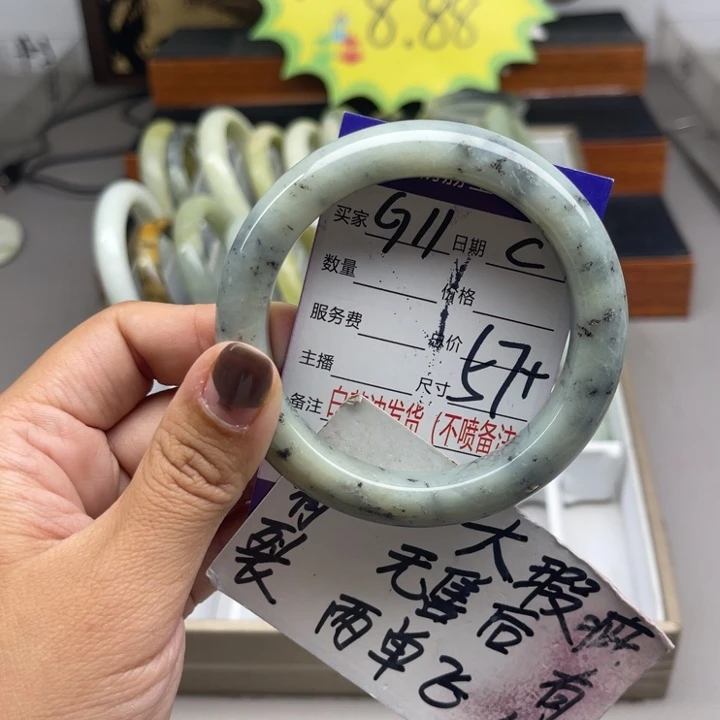 8.88
买家 911 日期 C
数量 价格
服务费 总价
主播 尺寸 57+
备注
发货(不喷备注
大瑕疵 有
无售后
两单飞
裂